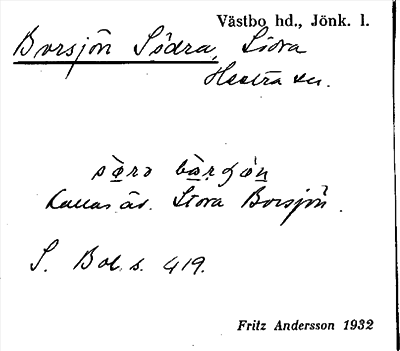 Västbo hd., Jönk. l.
Borsjön Södra, Södra
Hestra sn.
kallas äv. Stora Borsjön.
S. Bol. s. 419.
Fritz Andersson 1932